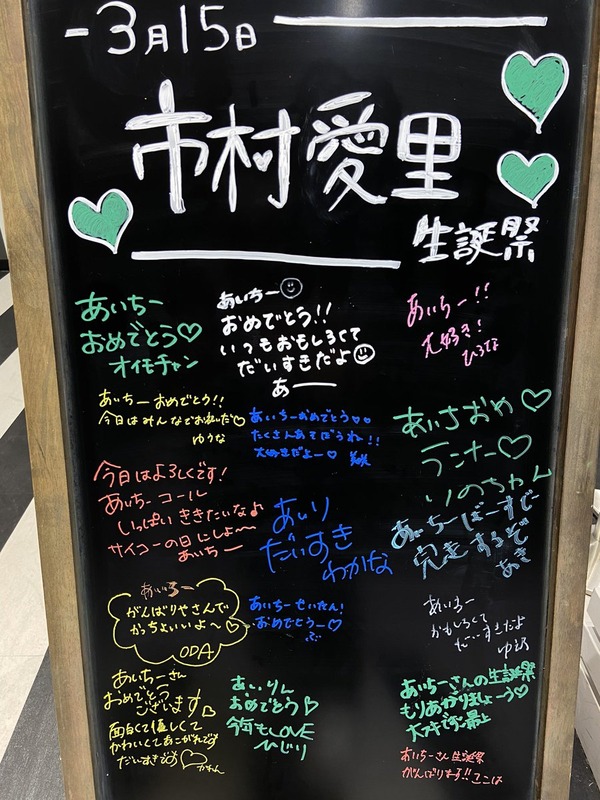 -3月15日
市村愛里
生誕祭
あいちー
おめでとう♡
オイモチャン
あいちー☺
おめでとう!!
いつもおもしろくて
だいすきだよ☺
あー
あいちー!!
大好き!
ひろな
あいちーおめでとう!!
今日はみんなでお祝いだ♡
ゆうな
あいちーおめでとう♡♡
たくさんあそぼうね!!
大好きだよー♡
あいさおめ♡
ランナー♡
りのちゃん
今日はよろしくです!
あいちーコール
いっぱいききたいなよ
サイコーの日にしよ〜
あいちー
あいり
だいすき
わかな
あいちーばーすでー
完走するぞ
あき
がんばりやさんで
かっちょいいよ〜♡
ODA
あいちーせいたん!
おめでとうー♡
ぶ
おもしろくて
だいすきだよ
あいちーさん
おめでとう
ございます♡
面白くて優しくて
かわいくてあこがれです
だいすきです♡
かれん
あいりん
おめでとう♡
今年もLOVE
ひじり
あいちーさんの生誕祭
もりあがりましょーう♡
あいちーさん生誕祭
がんばります!!ここは